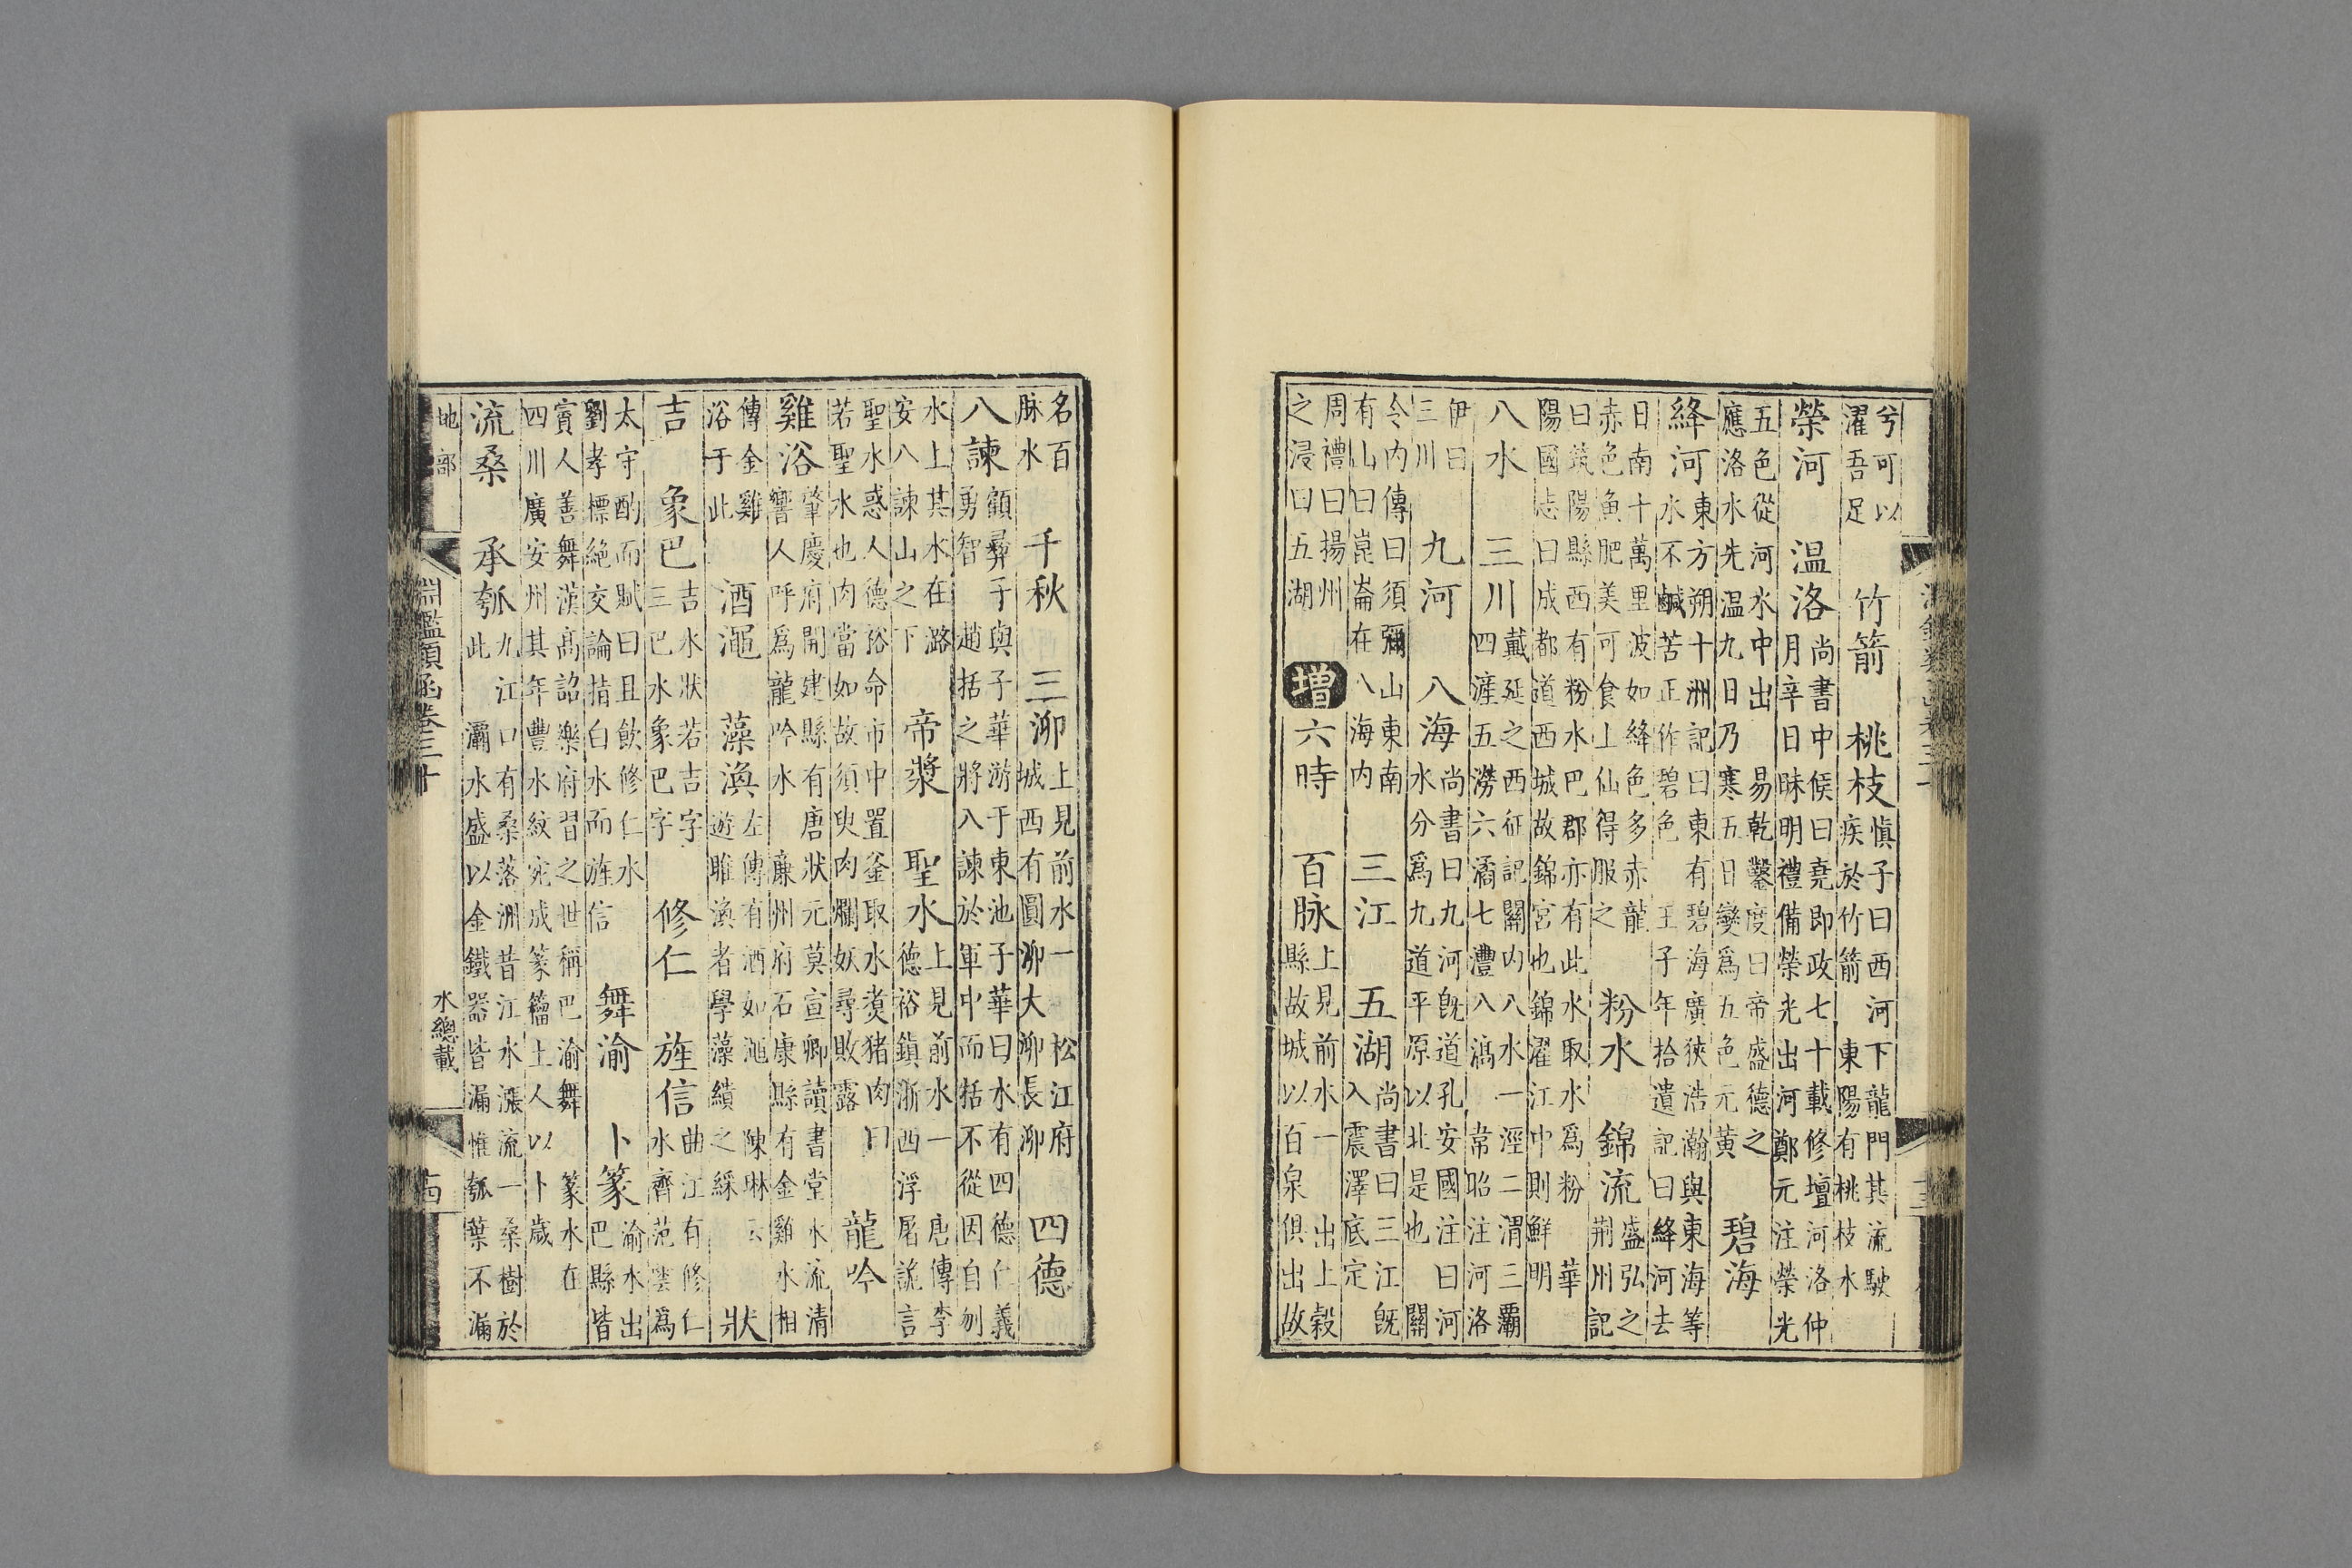 兮可以
濯吾足
竹箭
桃枝
愼子曰西河下龍門其流駛
疾於竹箭 東陽有桃枝水
榮河
温洛
尚書中候曰堯即政七十載修壇河洛仲
月辛日昧明禮備榮光出河鄭元注榮光
五色從河水中出 易乾鑿度曰帝盛德之
應洛水先温九日乃寒五日變爲五色元黄
碧海
絳河
東方朔十洲記曰東有碧海廣狹浩瀚與東海等
水不鹹苦正作碧色 王子年拾遺記曰絳河去
日南十萬里波如絳色多赤龍
赤色魚肥美可食上仙得服之
粉水
錦流
盛弘之
荆州記
曰筑陽縣西有粉水巴郡亦有此水取水爲粉 華
陽國志曰成都道西城故錦宮也錦濯江中則鮮明
八水
三川
戴延之西征記關内八水一涇二渭三灞
四滻五澇六潏七灃八滈 韋昭注河洛
伊曰
三川
九河
八海
尚書曰九河旣道孔安國注曰河
水分爲九道平原以北是也 關
令内傳曰須彌山東南
有山曰崑崙在八海内
三江
五湖
尚書曰三江旣
入震澤底定
周禮曰揚州
之浸曰五湖
增
六時
百脉
上見前水一 出上穀
縣故城以百泉俱出故
名百
脉水
千秋
三泖
上見前水一 松江府
城西有圓泖大泖長泖
四德
八諫
顧彛子與子華游于東池子華曰水有四德仁義
勇智 趙括之將八諫於軍中而括不從因自刎
水上其水在潞
安八諫山之下
帝漿
聖水
上見前水一 唐傳李
德裕鎮浙西浮屠詭言
聖水惑人德裕命市中置釜取水煑猪肉曰
若聖水也肉當如故須臾肉爛妖尋敗露
龍吟
雞浴
肇慶府開建縣有唐狀元莫宣卿讀書堂水流清
響人呼爲龍吟水 廉州府石康縣有金雞水相
傳金雞
浴于此
酒澠
藻渙
左傳有酒如澠 陳琳云
遊睢渙者學藻繢之綵
狀
吉
象巴
吉水狀若吉字
三巴水象巴字
修仁
旌信
曲江有修仁
水齊范雲爲
太守酌而賦曰且飲修仁水
劉孝標絶交論指白水而旌信
舞渝
卜篆
渝水出
巴縣皆
賨人善舞漢高詔樂府習之世稱巴渝舞 篆水在
四川廣安州其年豐水紋宛成篆籀土人以卜歲
流桑
承瓠
九江口有桑落洲昔江水漲流一桑樹於
此 灞水盛以金鐵器皆漏惟瓠葉不漏
地部
淵鑑類函卷三十
水總載